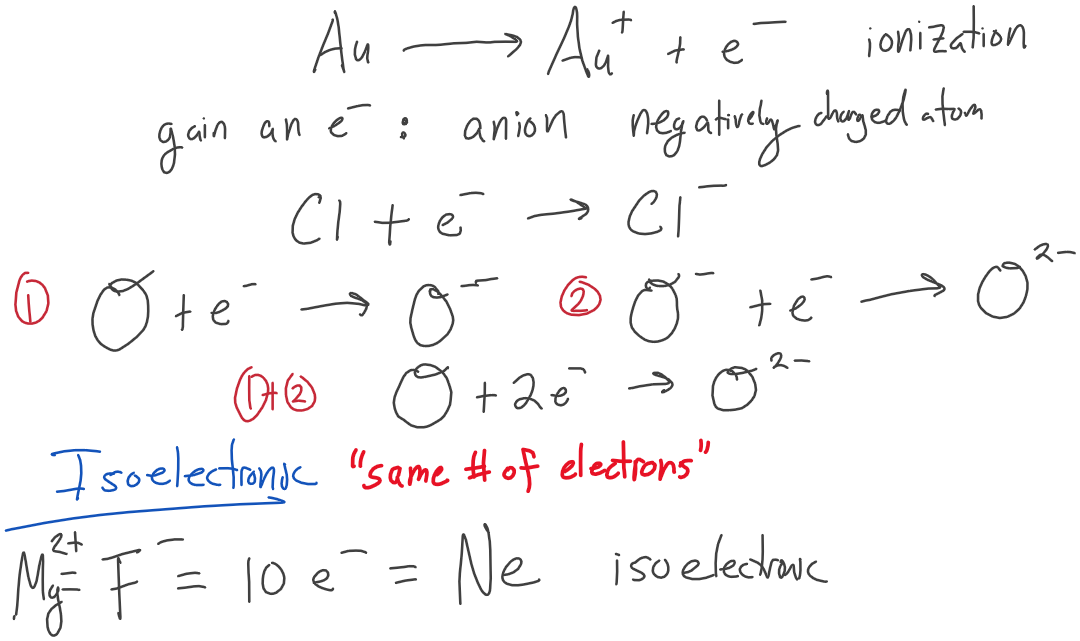 Au ⟶ Au⁺ + e⁻ ionization
gain an e⁻ : anion negatively charged atom
Cl + e⁻ → Cl⁻
① O + e⁻ → O⁻ ② O⁻ + e⁻ → O²⁻
①+② O + 2e⁻ → O²⁻
Isoelectronic "same # of electrons"
Mg²⁺ = F⁻ = 10 e⁻ = Ne isoelectronic